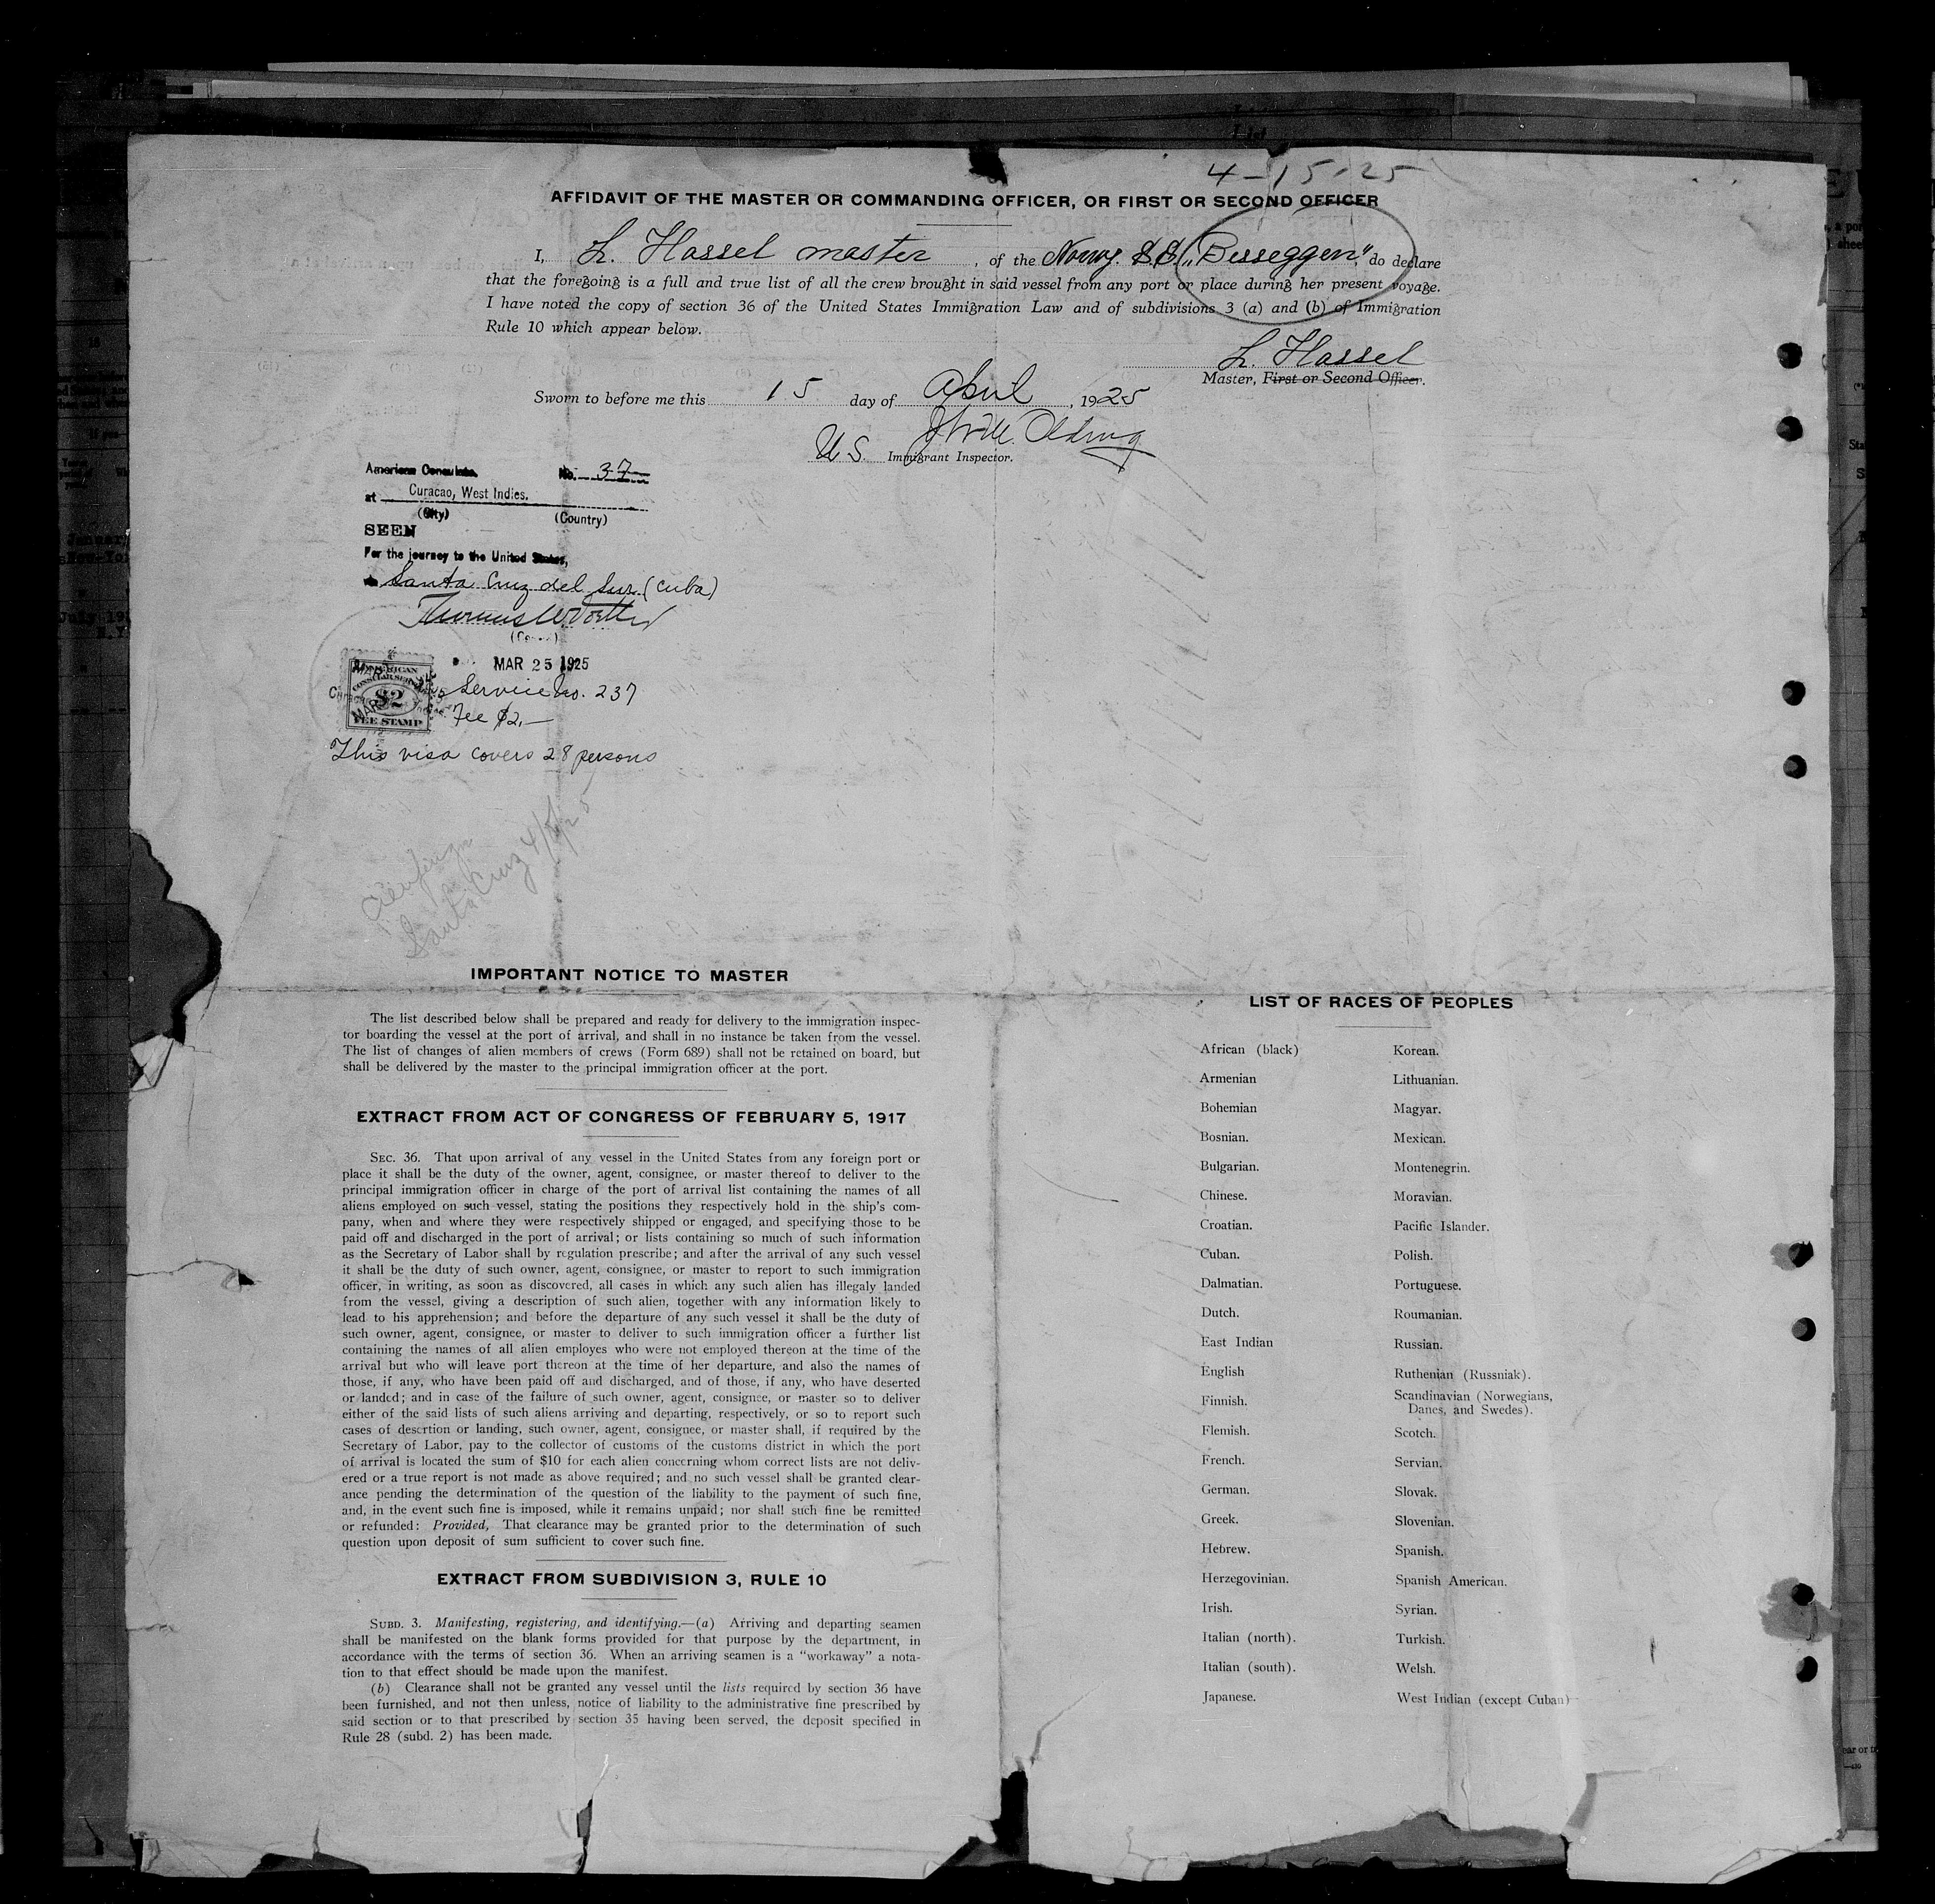 4-15-25
AFFIDAVIT OF THE MASTER OR COMMANDING OFFICER, OR FIRST OR SECOND OFFICER
I, L. Hassel master, of the Norwg. S.S. „Besseggen", do declare
that the foregoing is a full and true list of all the crew brought in said vessel from any port or place during her present voyage.
I have noted the copy of section 36 of the United States Immigration Law and of subdivisions 3 (a) and (b) of Immigration
Rule 10 which appear below.
L. Hassel
Master, First or Second Officer.
Sworn to before me this 15 day of April, 1925
U.S. Immigrant Inspector.
American Consulate. No. 37
at Curacao, West Indies.
(City) (Country)
SEEN
For the journey to the United States,
Santa Cruz del Sur (Cuba)
MAR 25 1925
AMERICAN
CONSULAR SERVICE
$2
FEE STAMP
Service No. 237
Fee $2,—
This visa covers 28 persons
Santa Cruz
IMPORTANT NOTICE TO MASTER
The list described below shall be prepared and ready for delivery to the immigration inspec-
tor boarding the vessel at the port of arrival, and shall in no instance be taken from the vessel.
The list of changes of alien members of crews (Form 689) shall not be retained on board, but
shall be delivered by the master to the principal immigration officer at the port.
EXTRACT FROM ACT OF CONGRESS OF FEBRUARY 5, 1917
SEC. 36. That upon arrival of any vessel in the United States from any foreign port or
place it shall be the duty of the owner, agent, consignee, or master thereof to deliver to the
principal immigration officer in charge of the port of arrival list containing the names of all
aliens employed on such vessel, stating the positions they respectively hold in the ship's com-
pany, when and where they were respectively shipped or engaged, and specifying those to be
paid off and discharged in the port of arrival; or lists containing so much of such information
as the Secretary of Labor shall by regulation prescribe; and after the arrival of any such vessel
it shall be the duty of such owner, agent, consignee, or master to report to such immigration
officer, in writing, as soon as discovered, all cases in which any such alien has illegaly landed
from the vessel, giving a description of such alien, together with any information likely to
lead to his apprehension; and before the departure of any such vessel it shall be the duty of
such owner, agent, consignee, or master to deliver to such immigration officer a further list
containing the names of all alien employes who were not employed thereon at the time of the
arrival but who will leave port thereon at the time of her departure, and also the names of
those, if any, who have been paid off and discharged, and of those, if any, who have deserted
or landed; and in case of the failure of such owner, agent, consignee, or master so to deliver
either of the said lists of such aliens arriving and departing, respectively, or so to report such
cases of desertion or landing, such owner, agent, consignee, or master shall, if required by the
Secretary of Labor, pay to the collector of customs of the customs district in which the port
of arrival is located the sum of $10 for each alien concerning whom correct lists are not deliv-
ered or a true report is not made as above required; and no such vessel shall be granted clear-
ance pending the determination of the question of the liability to the payment of such fine,
and, in the event such fine is imposed, while it remains unpaid; nor shall such fine be remitted
or refunded: Provided, That clearance may be granted prior to the determination of such
question upon deposit of sum sufficient to cover such fine.
EXTRACT FROM SUBDIVISION 3, RULE 10
SUBD. 3. Manifesting, registering, and identifying.—(a) Arriving and departing seamen
shall be manifested on the blank forms provided for that purpose by the department, in
accordance with the terms of section 36. When an arriving seamen is a "workaway" a nota-
tion to that effect should be made upon the manifest.
(b) Clearance shall not be granted any vessel until the lists required by section 36 have
been furnished, and not then unless, notice of liability to the administrative fine prescribed by
said section or to that prescribed by section 35 having been served, the deposit specified in
Rule 28 (subd. 2) has been made.
LIST OF RACES OF PEOPLES
African (black) Korean.
Armenian Lithuanian.
Bohemian Magyar.
Bosnian. Mexican.
Bulgarian. Montenegrin.
Chinese. Moravian.
Croatian. Pacific Islander.
Cuban. Polish.
Dalmatian. Portuguese.
Dutch. Roumanian.
East Indian Russian.
English Ruthenian (Russniak).
Finnish. Scandinavian (Norwegians,
Danes, and Swedes).
Flemish. Scotch.
French. Servian.
German. Slovak.
Greek. Slovenian.
Hebrew. Spanish.
Herzegovinian. Spanish American.
Irish. Syrian.
Italian (north). Turkish.
Italian (south). Welsh.
Japanese. West Indian (except Cuban)